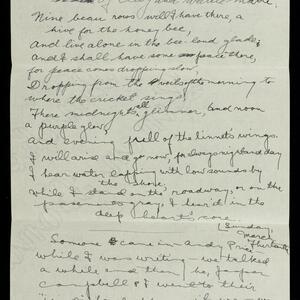 of clay and wattles made.
Nine bean rows will I have there, a
hive for the honey bee,
And live alone in the bee-loud glade,
And I shall have some peace there,
for peace comes dropping slow,
Dropping from the veils of the morning to
where the cricket sings;
There midnight's all glimmer, and noon
a purple glow,
And evening full of the linnet's wings.
I will arise and go now, for always night and day
I hear water lapping with low sounds by
the shore;
While I stand on the roadway, or on the
pavements gray, I hear it in the
deep heart's core.
(Sunday,
March
Thirtieth
Someone came in Andy Price
while I was writing - we talked
a while and then he, Jasper
Campbell & I went to their